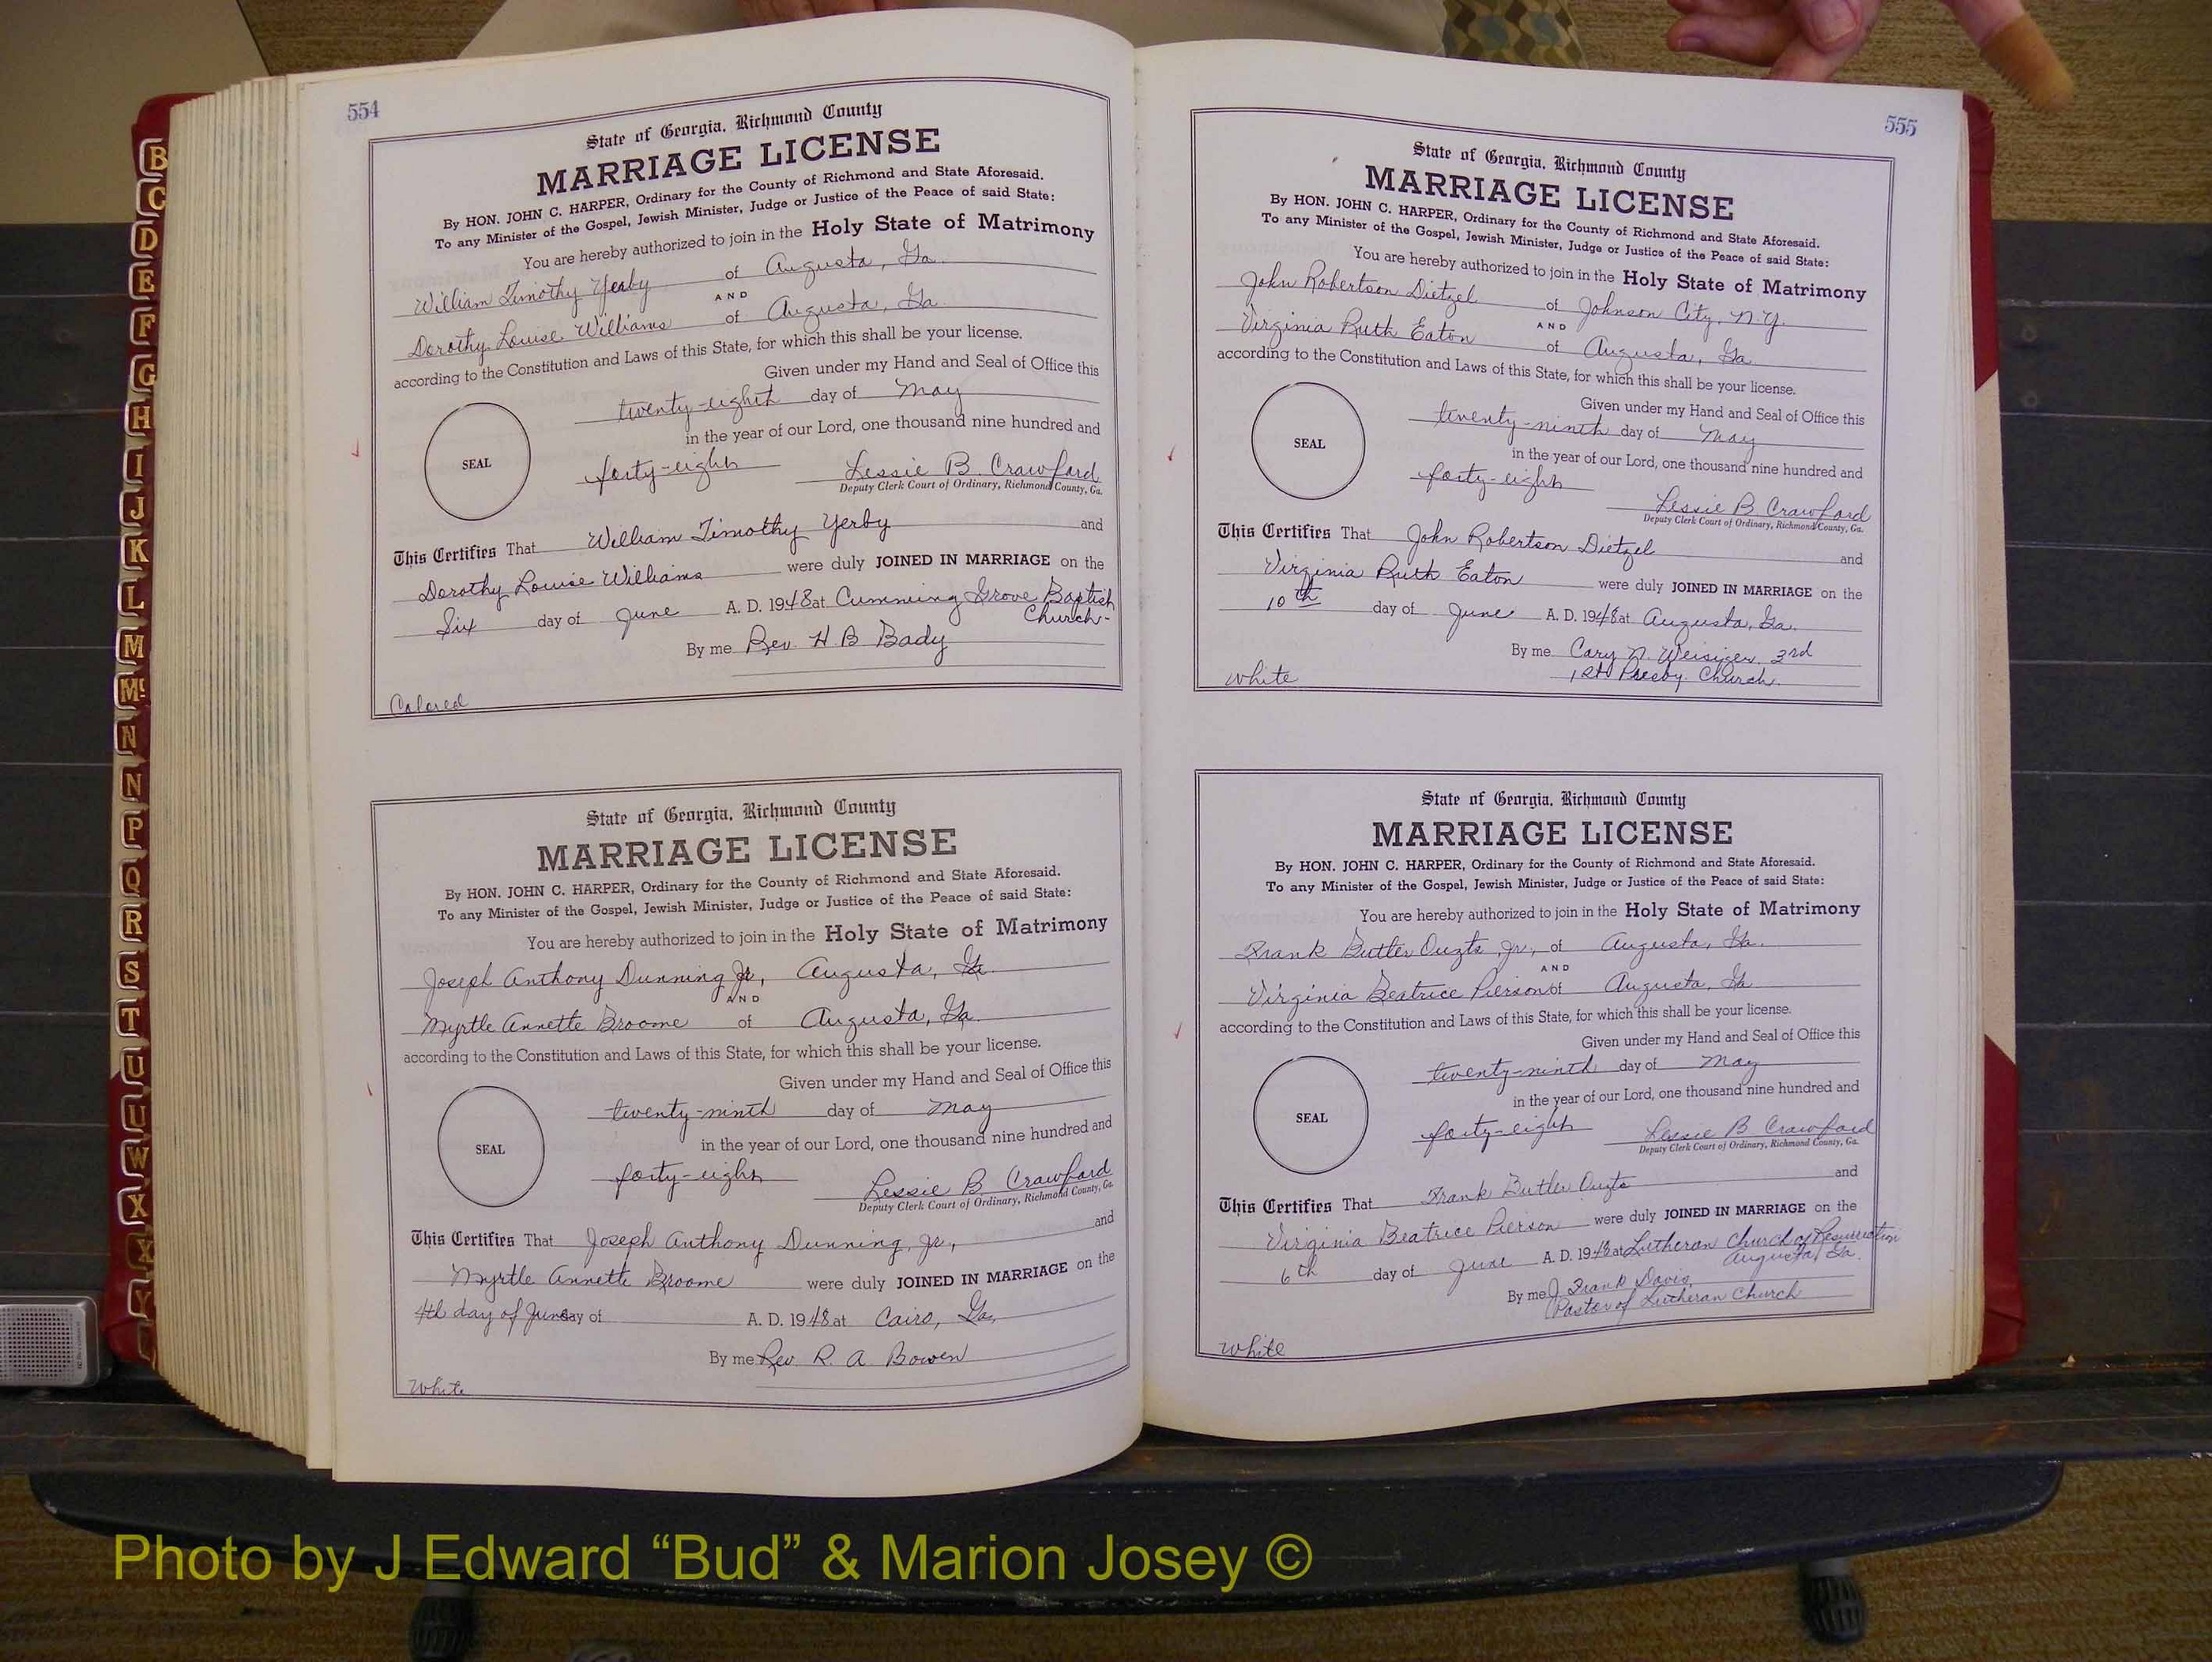 B
C
D
E
F
G
H
I
J
K
L
M
Mc
N
N
P
Q
R
S
T
U
U
W
X
X
Y
554
State of Georgia, Richmond County
MARRIAGE LICENSE
By HON. JOHN C. HARPER, Ordinary for the County of Richmond and State Aforesaid.
To any Minister of the Gospel, Jewish Minister, Judge or Justice of the Peace of said State:
You are hereby authorized to join in the Holy State of Matrimony
William Timothy Yerby of Augusta, Ga.
AND
Dorothy Louise Williams of Augusta, Ga.
according to the Constitution and Laws of this State, for which this shall be your license.
Given under my Hand and Seal of Office this
twenty-eight day of May
in the year of our Lord, one thousand nine hundred and
SEAL
forty-eight Lessie B. Crawford
Deputy Clerk Court of Ordinary, Richmond County, Ga.
This Certifies That William Timothy Yerby and
Dorothy Louise Williams were duly JOINED IN MARRIAGE on the
Six day of June A. D. 1948 at Cumming Grove Baptist
Church-
By me Rev. H. B. Bady
Colored
State of Georgia, Richmond County
MARRIAGE LICENSE
By HON. JOHN C. HARPER, Ordinary for the County of Richmond and State Aforesaid.
To any Minister of the Gospel, Jewish Minister, Judge or Justice of the Peace of said State:
You are hereby authorized to join in the Holy State of Matrimony
Joseph Anthony Dunning Jr., Augusta, Ga.
AND
Myrtle Annette Broome of Augusta, Ga.
according to the Constitution and Laws of this State, for which this shall be your license.
Given under my Hand and Seal of Office this
twenty-ninth day of May
in the year of our Lord, one thousand nine hundred and
SEAL
forty-eight Lessie B. Crawford
Deputy Clerk Court of Ordinary, Richmond County, Ga.
This Certifies That Joseph Anthony Dunning, Jr., and
Myrtle Annette Broome were duly JOINED IN MARRIAGE on the
4th day of June day of A. D. 1948 at Cairo, Ga.
By me Rev. R. A. Bowen
White
555
State of Georgia, Richmond County
MARRIAGE LICENSE
By HON. JOHN C. HARPER, Ordinary for the County of Richmond and State Aforesaid.
To any Minister of the Gospel, Jewish Minister, Judge or Justice of the Peace of said State:
You are hereby authorized to join in the Holy State of Matrimony
John Robertson Dietzel of Johnson City, N.Y.
AND
Virginia Ruth Eaton of Augusta, Ga.
according to the Constitution and Laws of this State, for which this shall be your license.
Given under my Hand and Seal of Office this
twenty-ninth day of May
in the year of our Lord, one thousand nine hundred and
SEAL
forty-eight Lessie B Crawford
Deputy Clerk Court of Ordinary, Richmond County, Ga.
This Certifies That John Robertson Dietzel and
Virginia Ruth Eaton were duly JOINED IN MARRIAGE on the
10th day of June A. D. 1948 at Augusta, Ga.
By me Cary N. Weisiger, 3rd
1st Presby. Church.
White
State of Georgia, Richmond County
MARRIAGE LICENSE
By HON. JOHN C. HARPER, Ordinary for the County of Richmond and State Aforesaid.
To any Minister of the Gospel, Jewish Minister, Judge or Justice of the Peace of said State:
You are hereby authorized to join in the Holy State of Matrimony
Frank Butler Ouzts, Jr., of Augusta, Ga.
AND
Virginia Beatrice Pierson of Augusta, Ga
according to the Constitution and Laws of this State, for which this shall be your license.
Given under my Hand and Seal of Office this
twenty-ninth day of May
in the year of our Lord, one thousand nine hundred and
SEAL
forty-eight Lessie B Crawford
Deputy Clerk Court of Ordinary, Richmond County, Ga.
This Certifies That Frank Butler Ouzts and
Virginia Beatrice Pierson were duly JOINED IN MARRIAGE on the
6th day of June A. D. 1948 at Lutheran Church of Resurrection
Augusta, Ga.
By me J. Frank Davis,
Pastor of Lutheran Church
White
Photo by J Edward “Bud” & Marion Josey ©